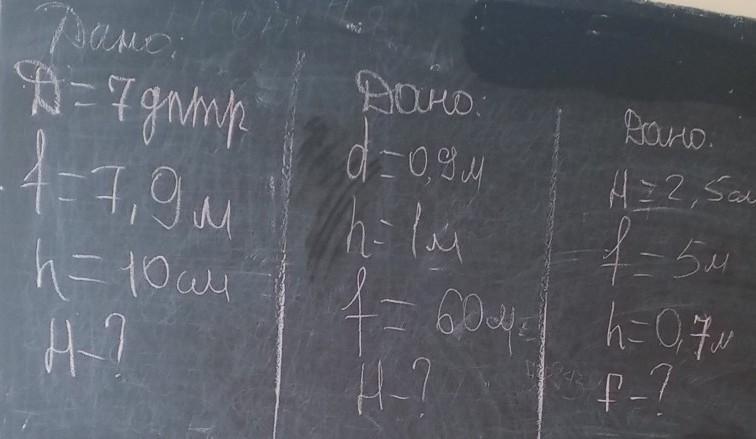 Дано:
D=7дптр
f=7,9м
h=10см
H-?
Дано:
d=0,9м
h=1м
f=60м
H-?
Дано:
H=2,5см
f=5м
h=0,7м
F-?